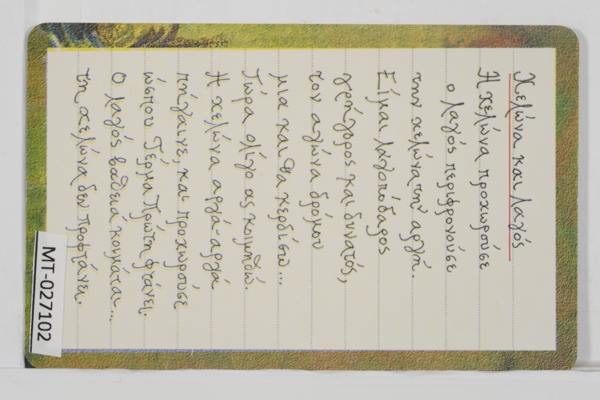 Χελώνα και λαγός
Η χελώνα προχωρούσε
ο λαγός περιφρονούσε
την χελώνα την αργή.
Είμαι λαγοπόδαρος
γρήγορος και δυνατός,
τον αγώνα δρόμου
μια και θα κερδίσω...
Τώρα ολίγο ας κοιμηθώ.
Η χελώνα αργά-αργά
πήγαινε, και προχωρούσε
ώσπου Τέρμα Πρώτη φτάνει.
Ο λαγός βαθεια κοιμαται...
τη χελώνα δεν προφτάνει.
MT-027102